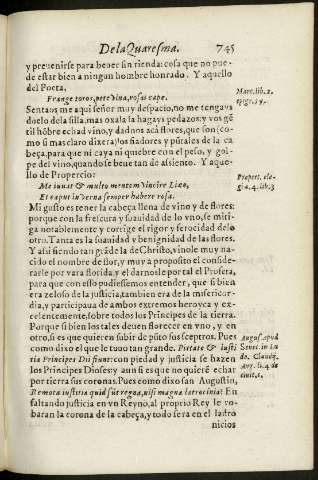 De la Quaresma. 745
y preuenirse para beuer sin rienda: cosa que no pue-
de estar bien a ningun hombre honrado. Y aquello
del Poeta,
Frange toros, pete vina, rosas cape.
Marc. lib. 2.
epigr. 59.
Sentaos me aqui señor muy despacio, no me tengays
duelo de la silla, mas oxala la hagays pedazos: y vos gẽ
til hõbre echad vino, y dadnos acà flores, que son (co-
mo si mas claro dixera) los fiadores y pùrales de la ca
beça, para que ni caya ni quiebre con el peso, y gol-
pe del vino, quando se beue tan de assiento. Y aque-
llo de Propercio:
Me iuuat & multo mentem vincire Lieo,
Et caput in verna semper habere rosa.
Propert. ele-
gia. 4. lib. 3
Mi gusto es tener la cabeça llena de vino y de flores:
porque con la frescura y suauidad de lo vno, se miti-
ga notablemente y corrige el rigor y ferocidad del o
otro. Tanta es la suauidad y benignidad de las flores.
Y assi siendo tan grãde la de Christo, vinole muy na-
cido el nombre de flor, y muy a proposito el conside-
rarle por vara florida, y el darnosle por tal el Profeta,
para que con esso pudiessemos entender, que si bien
era zeloso de la justicia, tambien era de la misericor-
dia, y participaua de ambos extremos heroyca y ex-
celentemente, sobre todos los Principes de la tierra.
Porque si bien los tales deuen florecer en vno, y en
otro, si es que quieren subir de pũto sus sceptros. Pues
como dixo el que le tuuo tan grande. Pietate & iusti
tia Principes Dii fiunt: con piedad y justicia se hazen
los Principes Dioses y aun si es que no quierẽ echar
por tierra sus coronas. Pues como dixo san Augustin,
Remota iustitia quid sũt regna, nisi magna latrocinia: En
faltando justicia en vn Reyno, al proprio Rey le vo-
baran la corona de la cabeça, y todo sera en el ladro
August. apud
Senec. in lu
do. Claudij.
Aug. li. 4. de
ciuit. c.
nicios